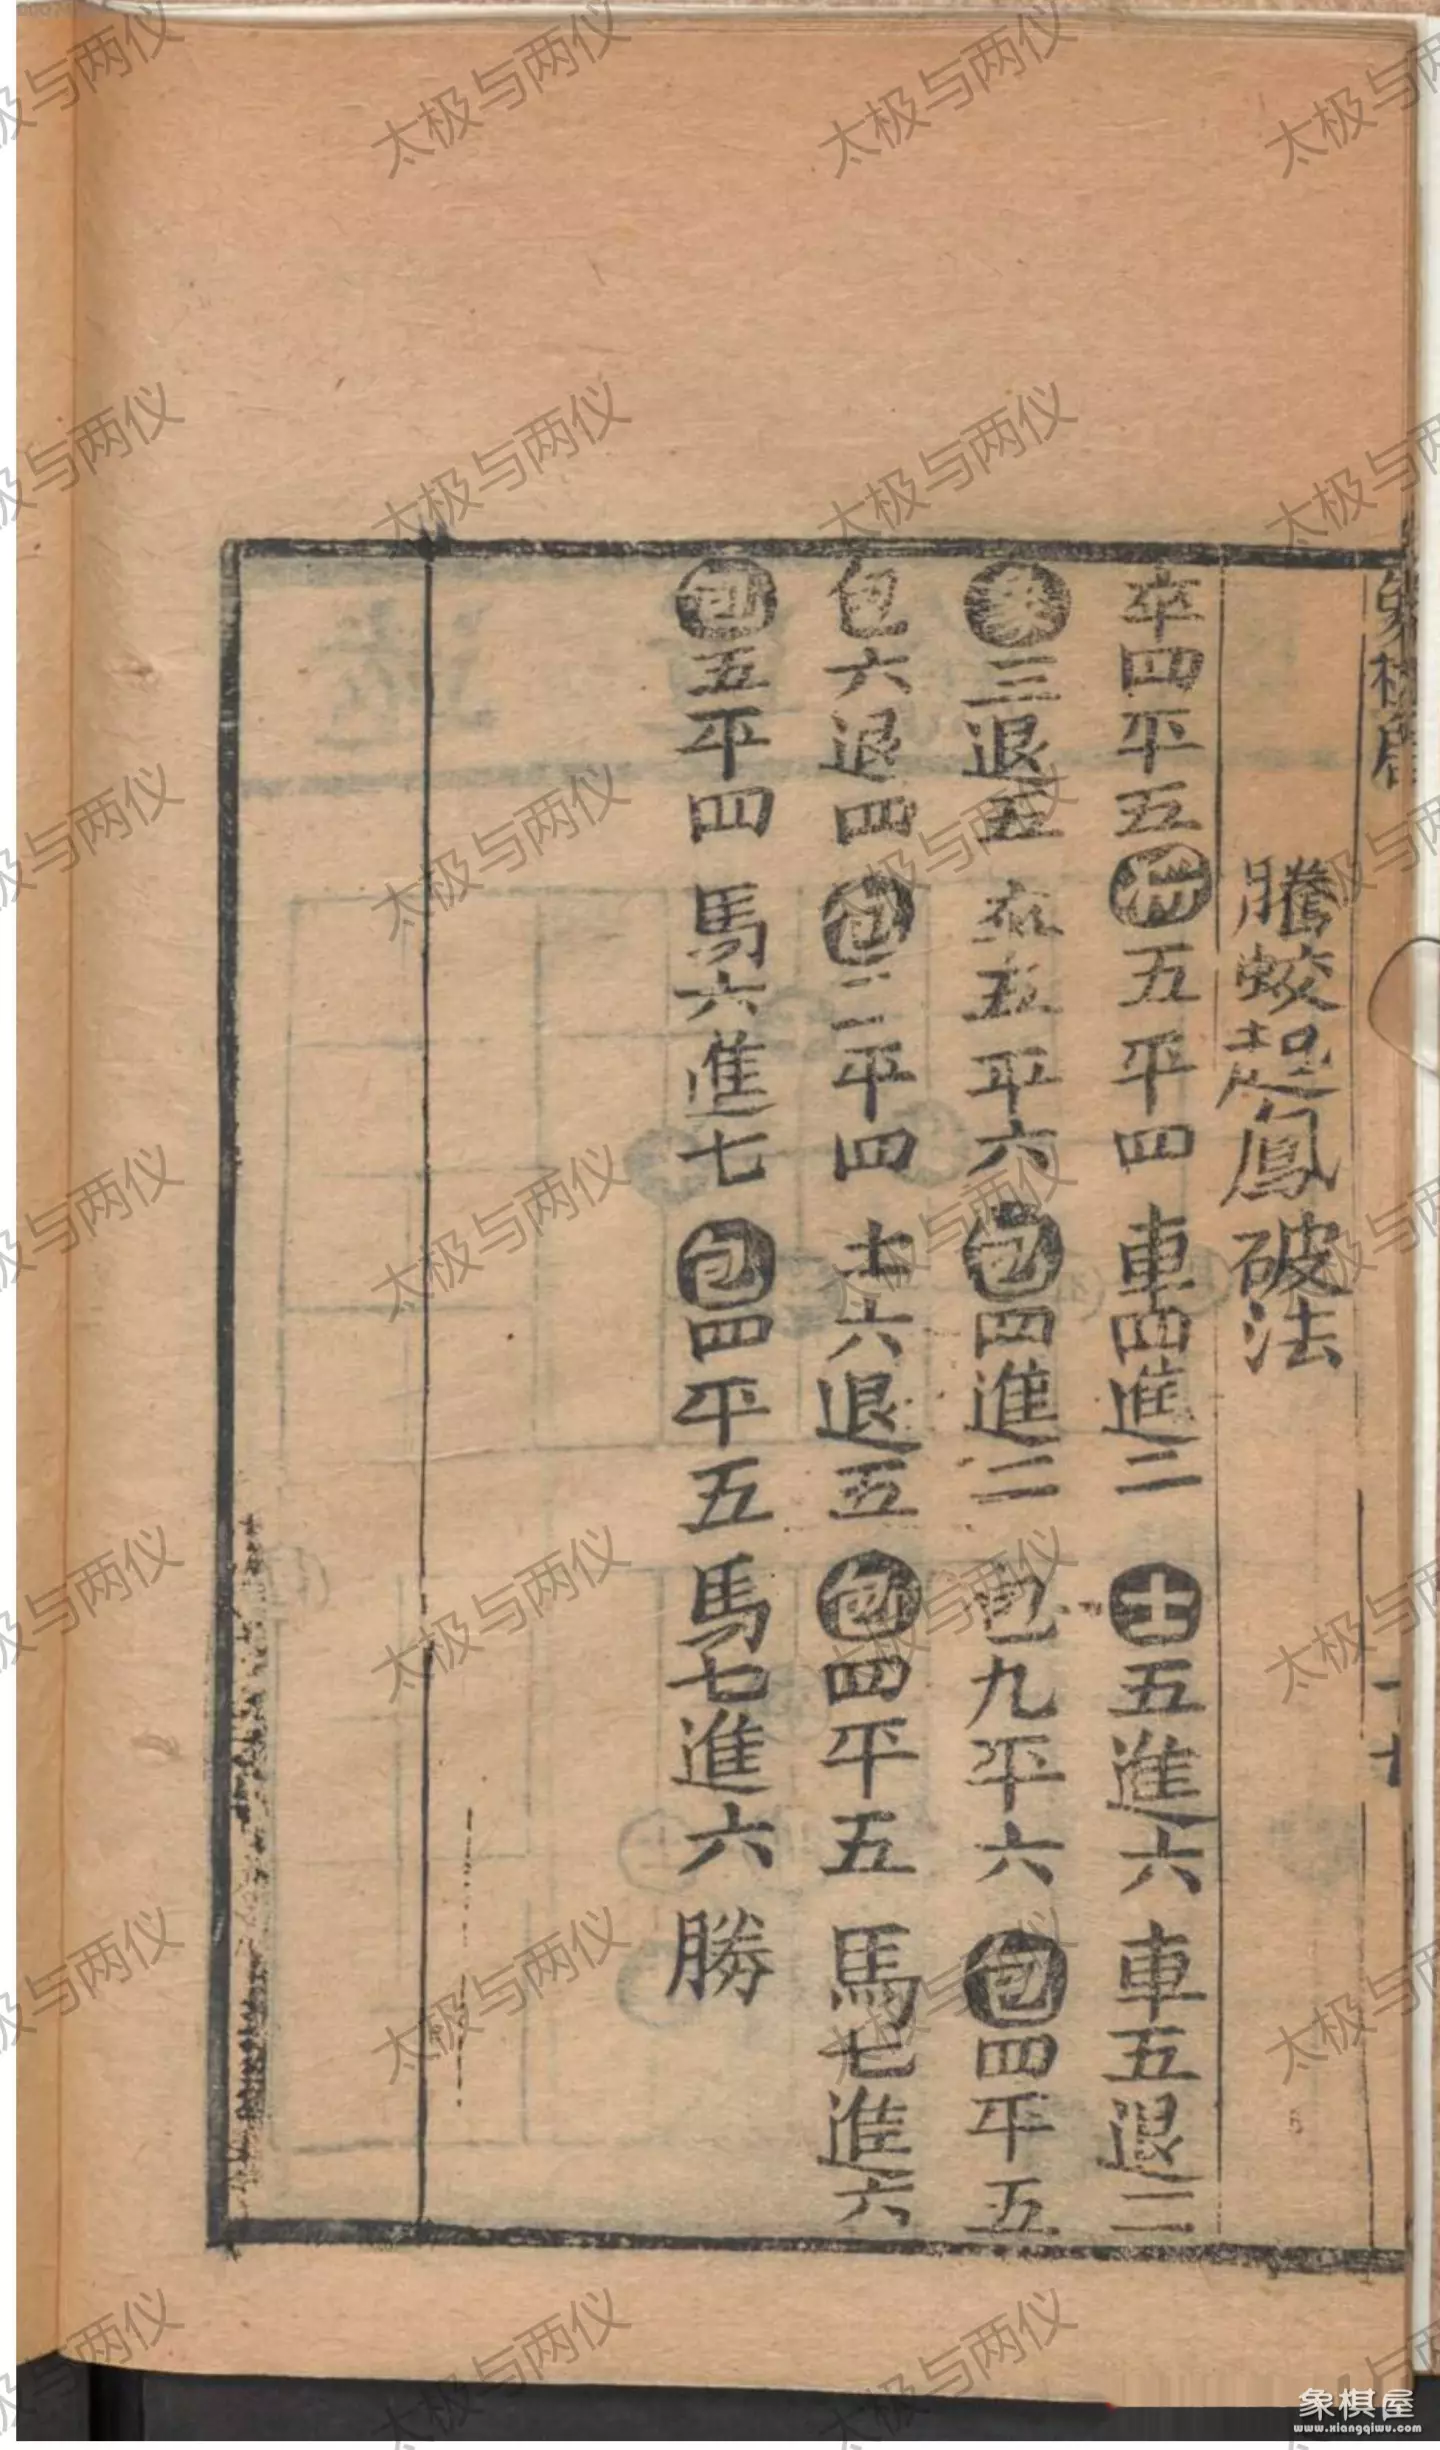 騰蛟起鳳破法
卒四平五 將五平四 車四進二 士五進六 車五退二
象三退五 卒五平六 包四進二 包九平六 包四平五
包六退四 包二平四 士六退五 包四平五 馬七進六
包五平四 馬六進七 包四平五 馬七進六 勝
太极与两仪
象棋屋
www.xiangqiwu.com